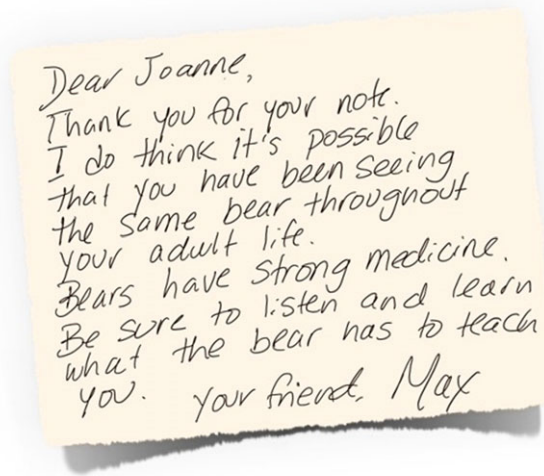 Dear Joanne,
Thank you for your note.
I do think it's possible
that you have been seeing
the same bear throughout
your adult life.
Bears have strong medicine.
Be sure to listen and learn
what the bear has to teach
you. Your friend, Max